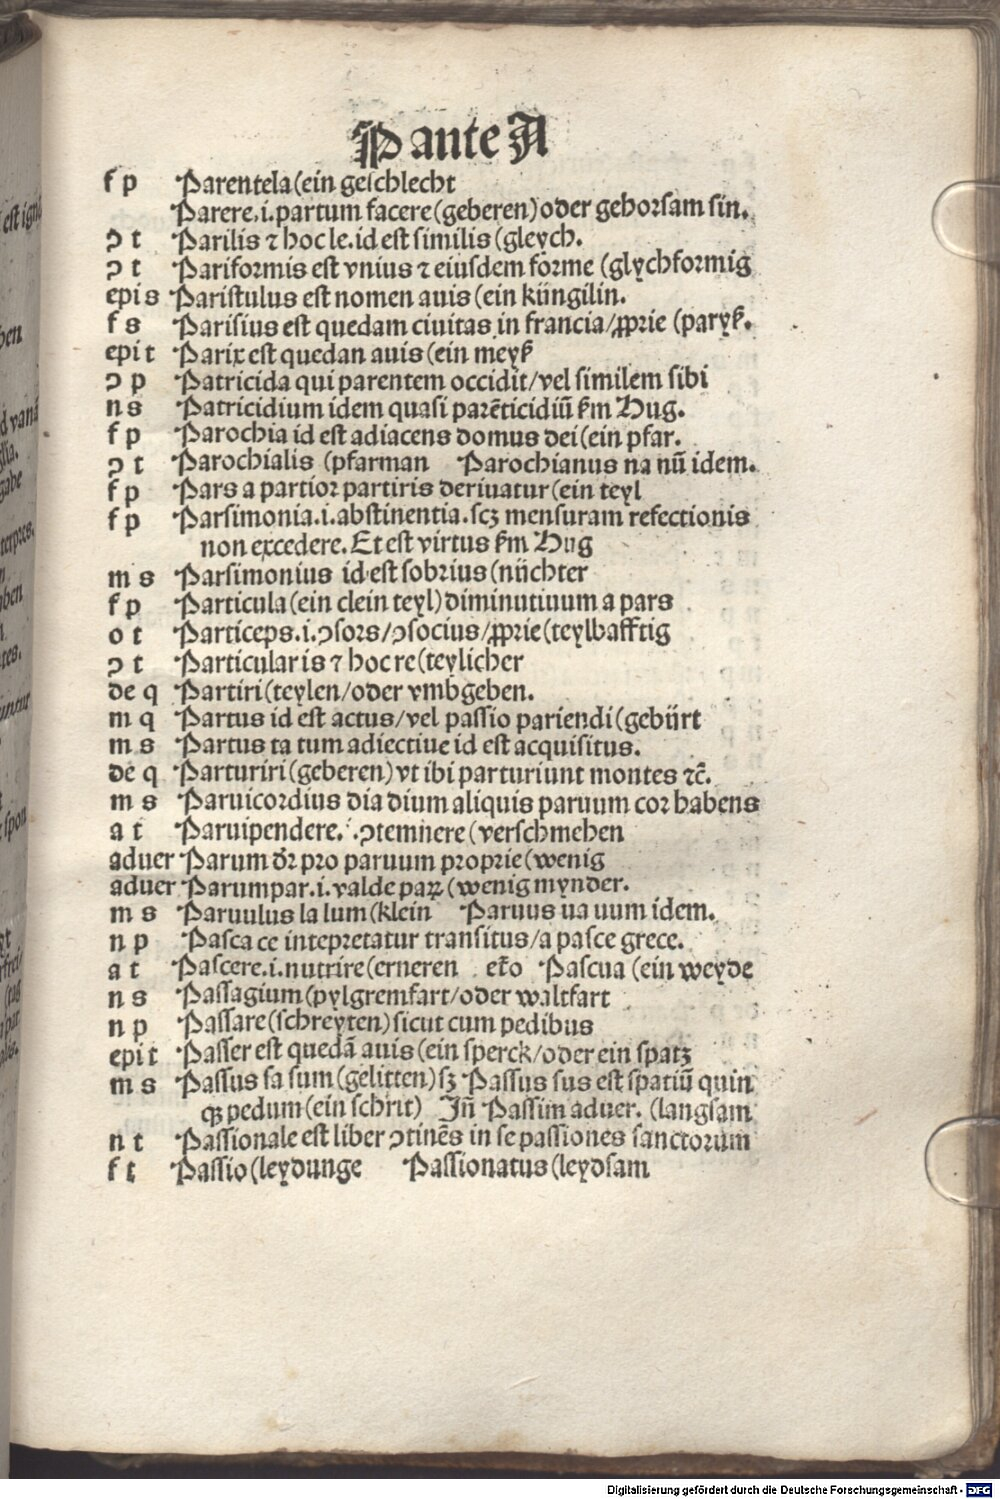 P ante A
f p Parentela (ein geschlecht
Parere .i. partum facere (geberen) oder gehorsam sin.
ↄ t Parilis ⁊ hoc le. id est similis (gleych.
ↄ t Pariformis est vnius ⁊ eiusdem forme (glychformig
epi s Paristulus est nomen auis (ein küngilin.
f s Parisius est quedam ciuitas in francia / ꝓprie (paryß.
epi t Parix est quedan auis (ein meyß
ↄ p Patricida qui parentem occidit / vel similem sibi
n s Patricidium idem quasi parēticidiū ßm Hug.
f p Parochia id est adiacens domus dei (ein pfar.
ↄ t Parochialis (pfarman Parochianus na nū idem.
f p Pars a partior partiris deriuatur (ein teyl
f p Parsimonia .i. abstinentia. scꝫ mensuram refectionis
non excedere. Et est virtus ßm Hug
m s Parsimonius id est sobrius (nüchter
f p Particula (ein clein teyl) diminutiuum a pars
o t Particeps .i. ↄsors / ↄsocius / ꝓprie (teylhafftig
ↄ t Particularis ⁊ hoc re (teylicher
de q Partiri (teylen / oder vmbgeben.
m q Partus id est actus / vel passio pariendi (gebürt
m s Partus ta tum adiectiue id est acquisitus.
de q Parturiri (geberen) vt ibi parturiunt montes ⁊c̄.
m s Paruicordius dia dium aliquis paruum cor habens
a t Paruipendere. .ↄtemnere (verschmehen
aduer Parum dr̄ pro paruum proprie (wenig
aduer Parumpar .i. valde paꝝ (wenig mynder.
m s Paruulus la lum (klein Paruus ua uum idem.
n p Pasca ce intepretatur transitus / a pasce grece.
a t Pascere .i. nutrire (erneren et̄o Pascua (ein weyde
n s Passagium (pylgremfart / oder waltfart
n p Passare (schreyten) sicut cum pedibus
epi t Passer est quedā auis (ein sperck / oder ein spatz
m s Passus sa sum (gelitten) sꝫ Passus sus est spatiū quin
qꝫ pedum (ein schrit) Jn̄ Passim aduer. (langsam
n t Passionale est liber ↄtinēs in se passiones sanctorum
f t Passio (leydunge Passionatus (leydsam
Digitalisierung gefördert durch die Deutsche Forschungsgemeinschaft - DFG